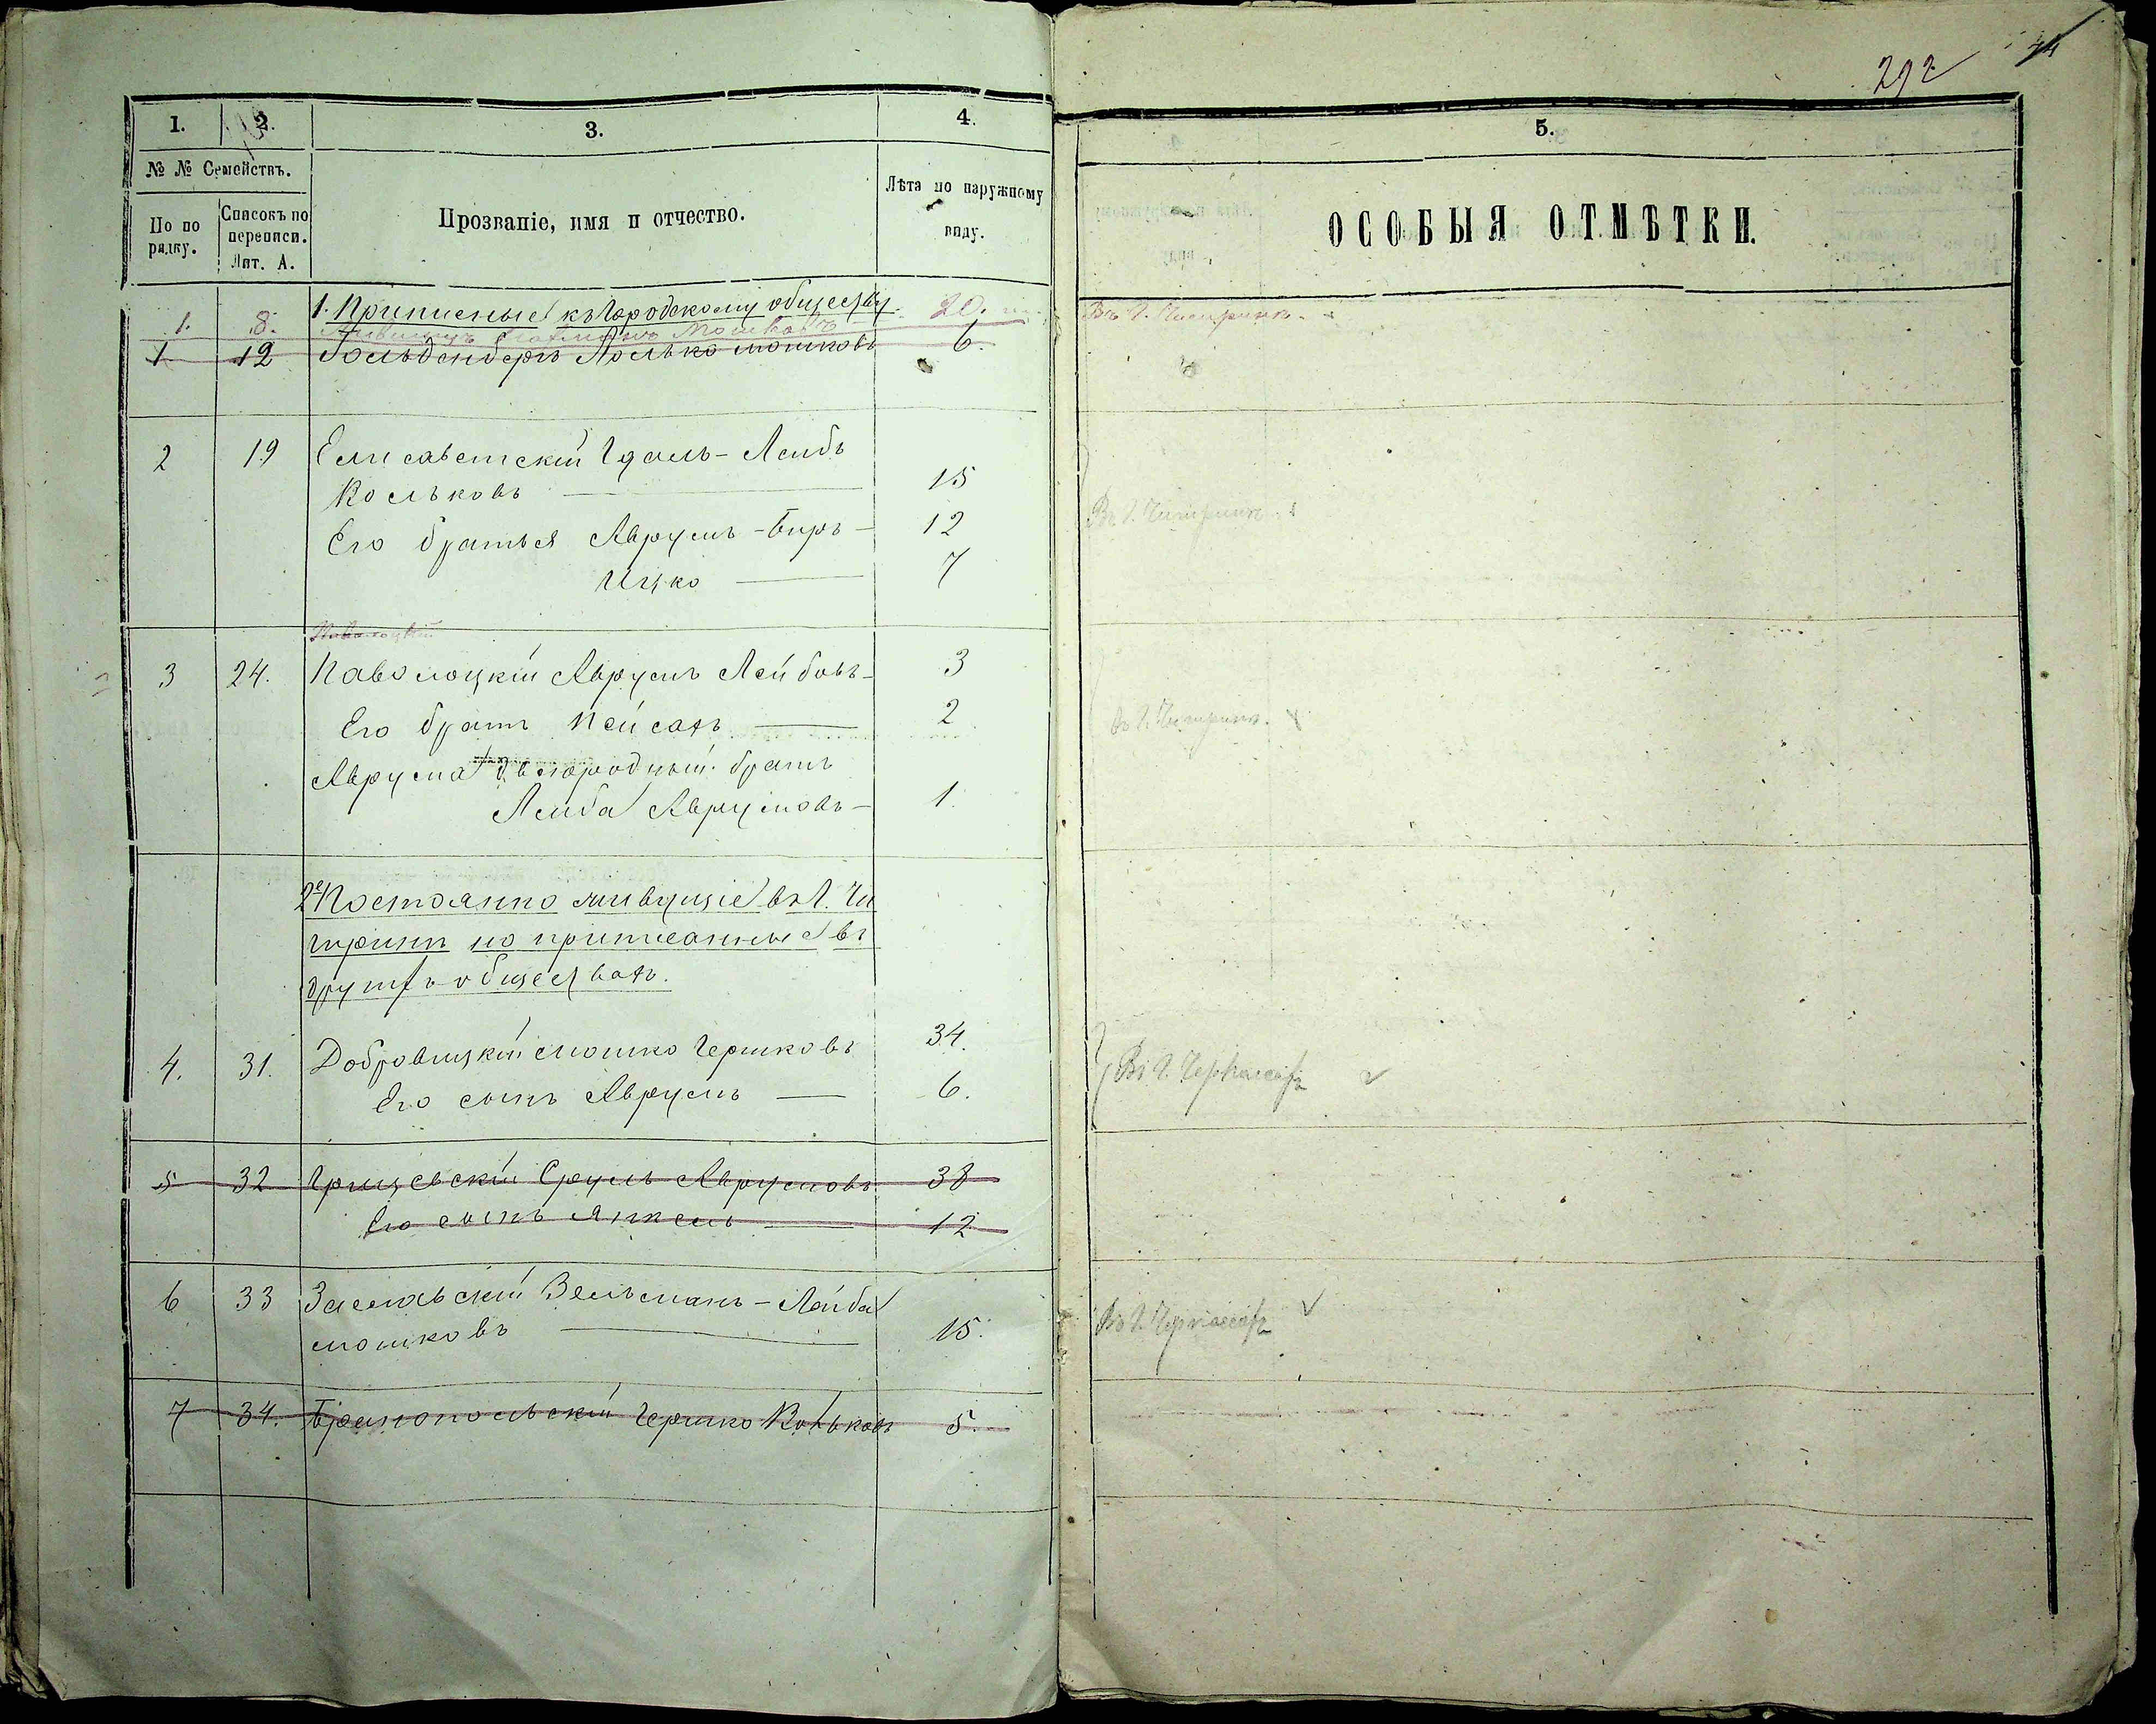 292
1. 2. 3. 4. 5.
№ № Семействъ.
По по рядку.
Списокъ по переписи. Лит. А.
Прозваніе, имя и отчество.
Лѣта по наружному виду.
ОСОБЫЯ ОТМѢТКИ.
1. Приписные къ городскому обществу
1. 8. Мошковъ 20. Въ г. Чигиринѣ.
1 12 Гольденбергъ Иосько Мошковъ 6.
2 19 Елисаветскій Гдаль-Лейбъ
Иоськовъ — 15
Его братья Аврумъ-Беръ — 12 Въ г. Чигиринѣ
Ицко — 7
Паволоцкій
3 24. Паволоцкій Аврумъ Лейбовъ — 3
Его братъ Пейсахъ — 2 Въ г. Чигиринѣ.
Аврума двоюродный братъ
Лейба Аврумовъ — 1.
2е Постоянно живущіе въ г. Чи
гиринѣ но приписанные въ
другихъ обществахъ.
4. 31. Добровицкій Мошко Гершковъ 34.
Его сынъ Аврумъ — 6. Въ г. Черкассахъ
5 32 Грищевскій Сруль Аврумовъ 38
Его сынъ Янкель — 12
6 33 Заславскій Зельманъ-Лейба
Мошковъ — 15. Въ г. Черкассахъ
7 34. Гершко 5.